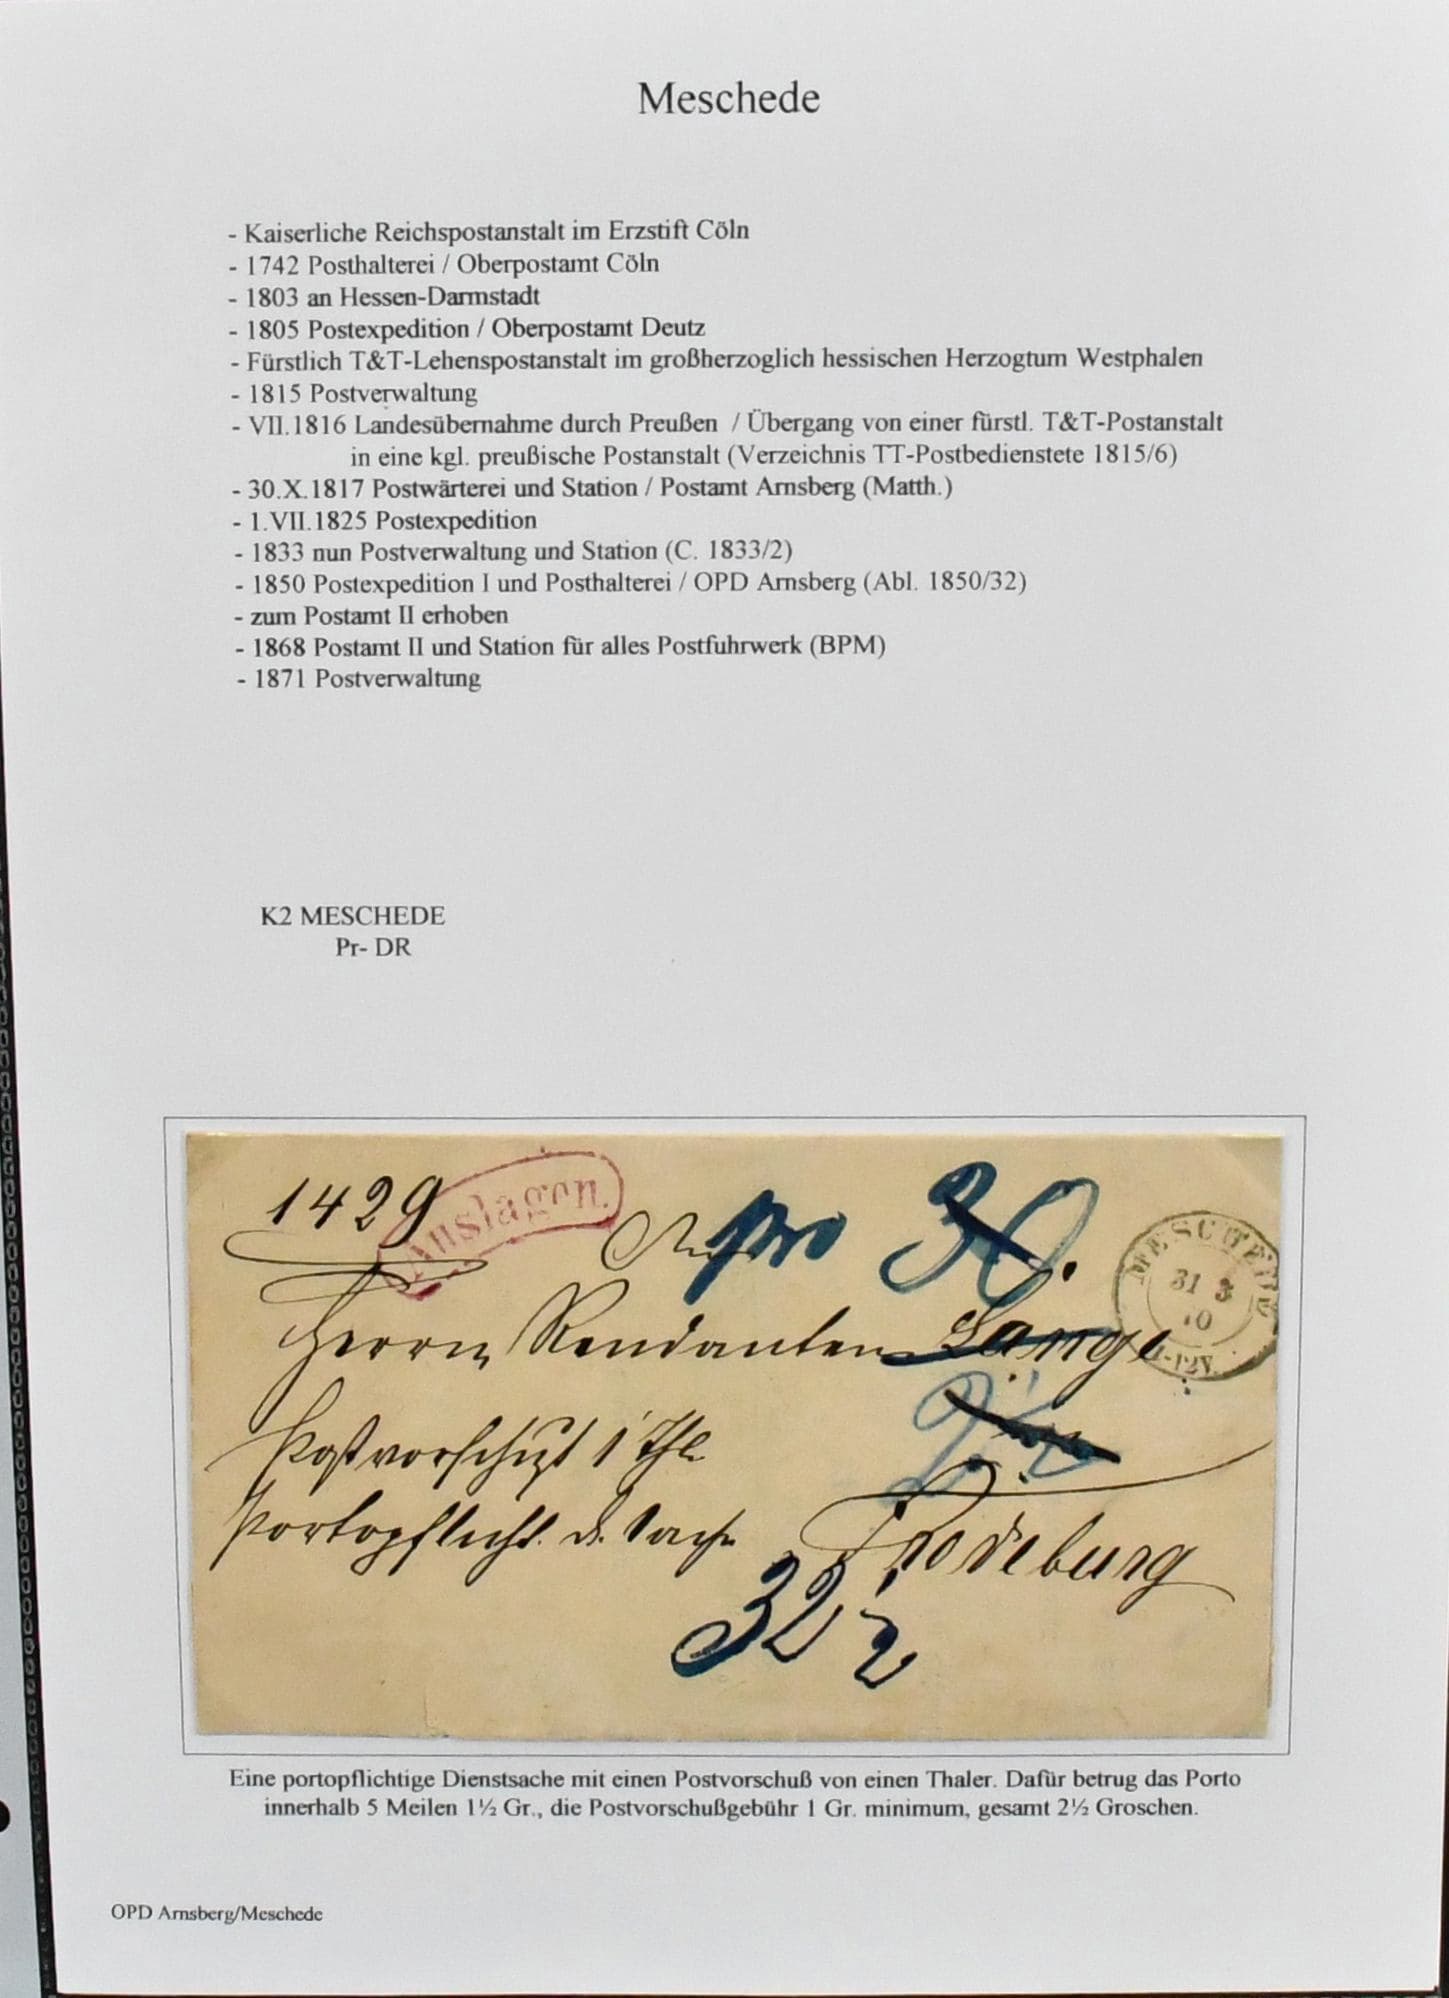 Meschede
- Kaiserliche Reichspostanstalt im Erzstift Cöln
- 1742 Posthalterei / Oberpostamt Cöln
- 1803 an Hessen-Darmstadt
- 1805 Postexpedition / Oberpostamt Deutz
- Fürstlich T&T-Lehenspostanstalt im großherzoglich hessischen Herzogtum Westphalen
- 1815 Postverwaltung
- VII.1816 Landesübernahme durch Preußen / Übergang von einer fürstl. T&T-Postanstalt
in eine kgl. preußische Postanstalt (Verzeichnis TT-Postbedienstete 1815/6)
- 30.X.1817 Postwärterei und Station / Postamt Arnsberg (Matth.)
- 1.VII.1825 Postexpedition
- 1833 nun Postverwaltung und Station (C. 1833/2)
- 1850 Postexpedition I und Posthalterei / OPD Arnsberg (Abl. 1850/32)
- zum Postamt II erhoben
- 1868 Postamt II und Station für alles Postfuhrwerk (BPM)
- 1871 Postverwaltung
K2 MESCHEDE
Pr- DR
1429
Auslagen.
pro 30.
MESCHEDE
31 3
11-12V.
Herrn Rendanten Lange
Postvorschuß 1 Thl
2½
portopflicht. d. Sache
Fredeburg
32½
Eine portopflichtige Dienstsache mit einen Postvorschuß von einen Thaler. Dafür betrug das Porto
innerhalb 5 Meilen 1½ Gr., die Postvorschußgebühr 1 Gr. minimum, gesamt 2½ Groschen.
OPD Arnsberg/Meschede